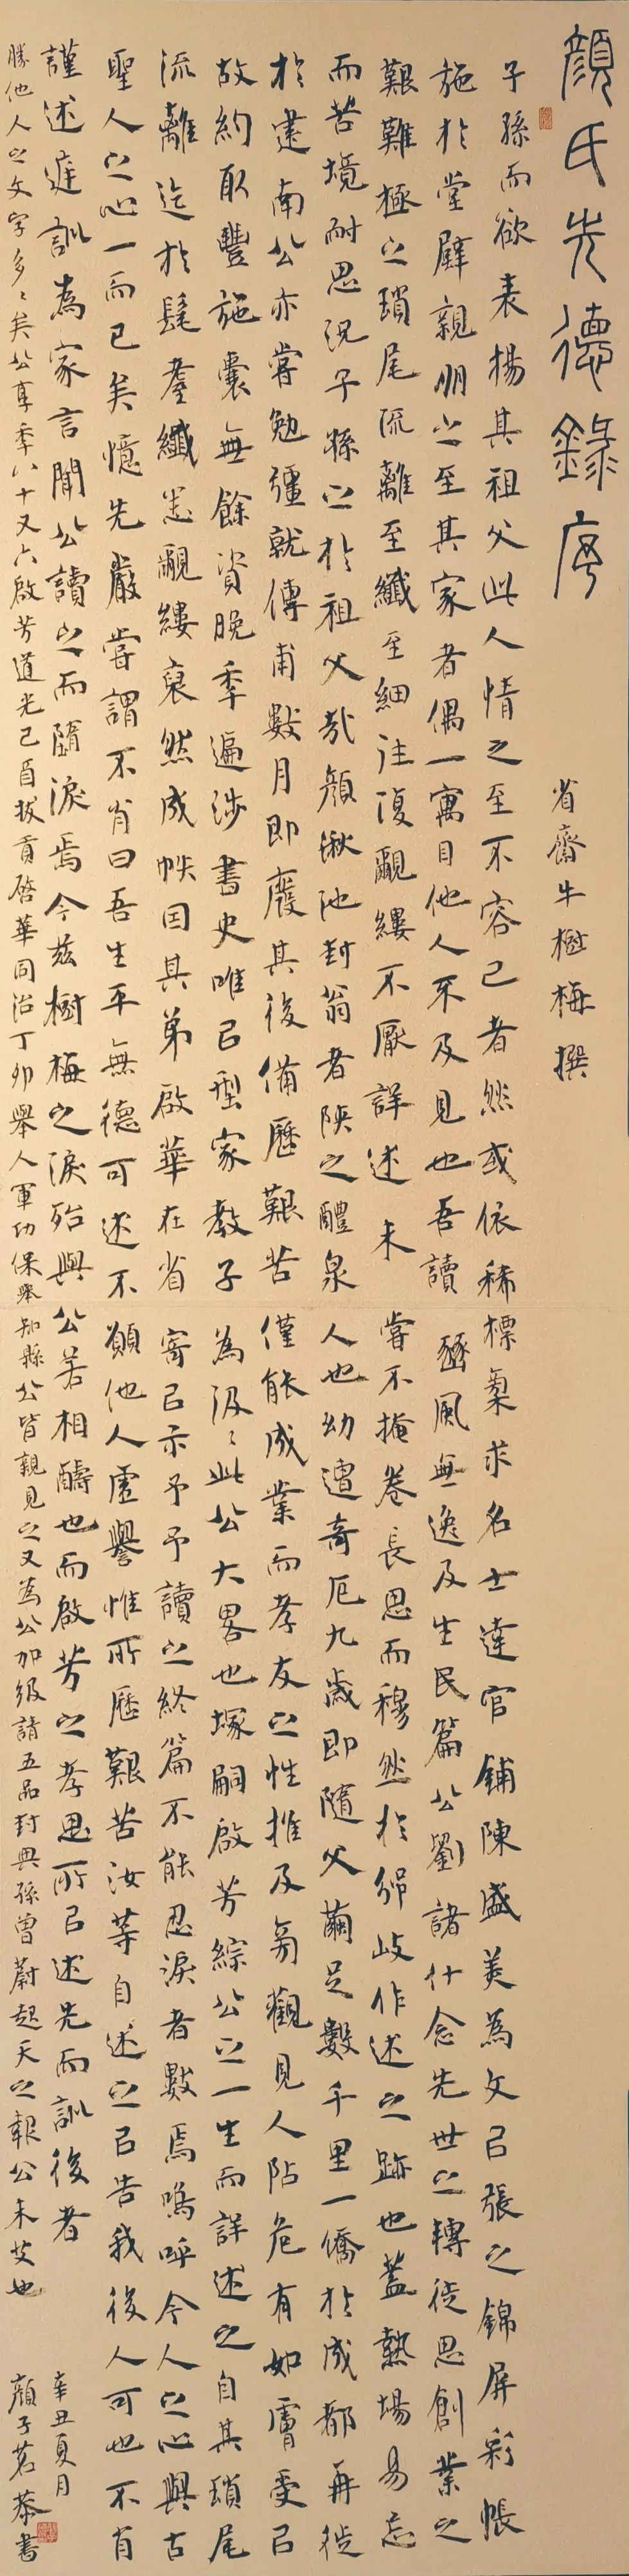 顏氏先德錄序
省齋牛樹梅撰
子孫而欲表揚其祖父此人情之至不容已者然或依稀標槩求名士達官鋪陳盛美為文㠯張之錦屏彩帳
施於堂壁親朋之至其家者偶一寓目他人不及見也吾讀豳風無逸及生民篇公劉諸什念先世之轉徙思創業之
艱難極之瑣尾流離至纖至細往復覼縷不厭詳述未嘗不掩卷長思而穆然於邠岐作述之跡也蓋熱場易忘
而苦境耐思況子孫之於祖父哉顏楸池封翁者陝之醴泉人也幼遭奇厄九歲即隨父繭足數千里一僑於成都再徙
於建南公亦嘗勉彊就傅甫數月即廢其後備歷艱苦僅能成業而孝友之性推及旁觀見人阽危有如膚受㠯
故約取豐施囊無餘資晚季遍涉書史唯㠯型家教子為汲〻此公大畧也塚嗣啟芳綜公之一生而詳述之自其瑣尾
流離迄於髦耋纖悉覼縷裒然成帙因其弟啟華在省寄㠯示予予讀之終篇不能忍淚者數焉嗚呼今人之心與古
聖人之心一而已矣憶先嚴嘗謂不肖曰吾生平無德可述不願他人虛譽惟所歷艱苦汝等自述之㠯告我後人可也不肖
謹述庭訓為家言聞公讀之而隨淚焉今茲樹梅之淚殆與公若相酬也而啟芳之孝思所㠯述先而訓後者
勝他人之文字多〻矣公享季八十又六啟芳道光己酉拔貢啟華同治丁卯舉人軍功保舉知縣公皆親見之又為公加級請五品封典孫曾蔚起天之報公未艾也
辛丑夏月
顏子茗恭書